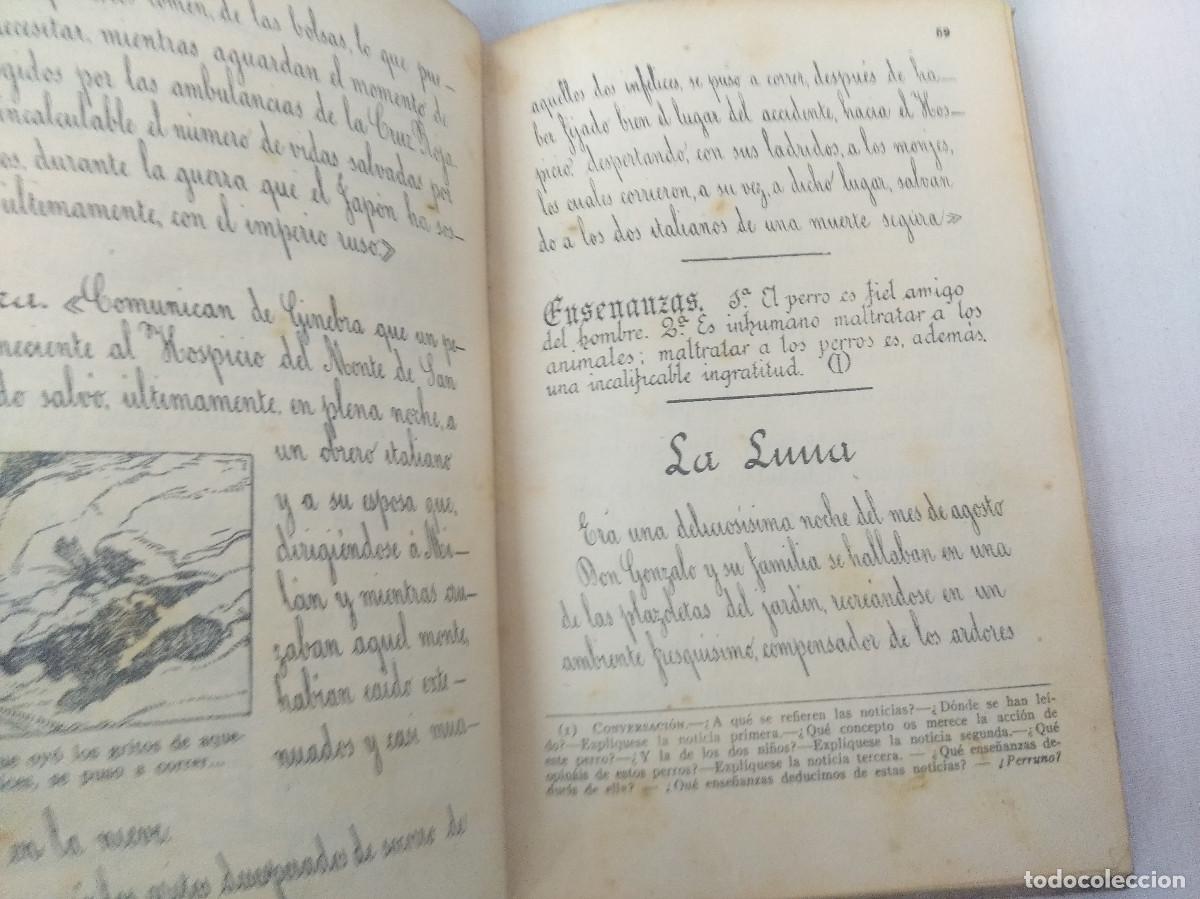 comen, de las bolsas, lo que pue-
necesitar, mientras aguardan el momento de
gidos por las ambulancias de la Cruz Roja
incalculable el número de vidas salvadas por
os, durante la guerra que el Japón ha sos-
últimamente, con el imperio ruso»
«Comunican de Ginebra que un pe-
neciente al Hospicio del Monte de San
do salvó, últimamente, en plena noche, a
un obrero italiano
y a su esposa que,
dirigiéndose á Mi-
lán y mientras cru-
zaban aquel monte,
habían caído exte-
nuados y casi mua-
que oyó los gritos de aque-
lices, se puso a correr...
en la nieve
desesperados de socorro de
69
aquellos dos infelices, se puso a correr, después de ha-
ber fijado bien el lugar del accidente, hacia el Hos-
picio, despertando, con sus ladridos, a los monjes,
los cuales corrieron, a su vez, a dicho lugar, salvan
do a los dos italianos de una muerte segura»
Enseñanzas. 1ª. El perro es fiel amigo
del hombre. 2ª. Es inhumano maltratar a los
animales; maltratar a los perros es, además,
una incalificable ingratitud. (1)
La Luna
Era una deliciosísima noche del mes de agosto
Don Gonzalo y su familia se hallaban en una
de las plazoletas del jardín, recreándose en un
ambiente fresquísimo, compensador de los ardores
(1) CONVERSACIÓN.—¿A qué se refieren las noticias?—¿Dónde se han leí-
do?—Explíquese la noticia primera.—¿Qué concepto os merece la acción de
este perro?—¿Y la de los dos niños?—Explíquese la noticia segunda.—¿Qué
opináis de estos perros?—Explíquese la noticia tercera. — ¿Qué enseñanzas de-
ducís de ella? — ¿Qué enseñanzas deducimos de estas noticias? — ¿Perruno?
todocoleccion